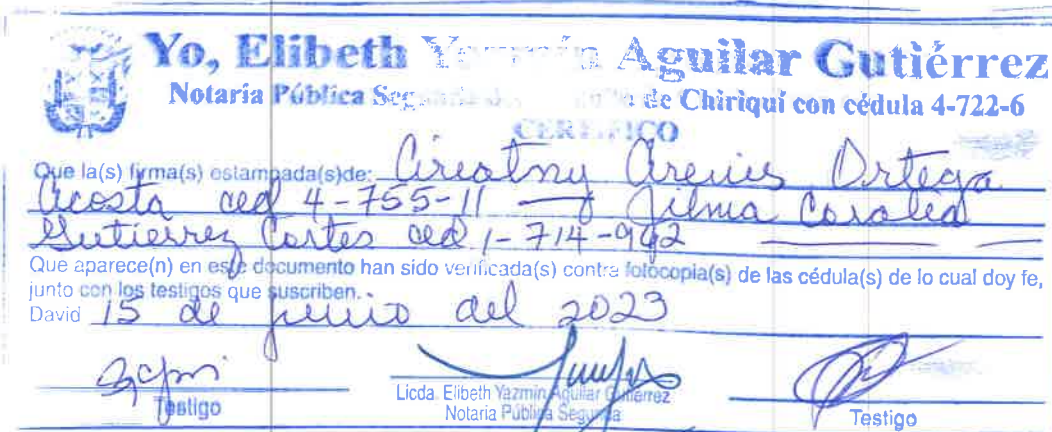 Yo, Elibeth Yazmín Aguilar Gutiérrez
Notaria Pública Segunda de Chiriquí con cédula 4-722-6
CERTIFICO
Que la(s) firma(s) estampada(s)de: Cireatny Arenis Ortega
Acosta ced 4-755-11 — y Jilma Coralea
Gutierrez Cortes ced 1-714-942
Que aparece(n) en este documento han sido verificada(s) contra fotocopia(s) de las cédula(s) de lo cual doy fe,
junto con los testigos que suscriben.
David 15 de junio del 2023
Testigo
Licda. Elibeth Yazmin Aguilar Gutierrez
Notaria Pública Segunda
Testigo